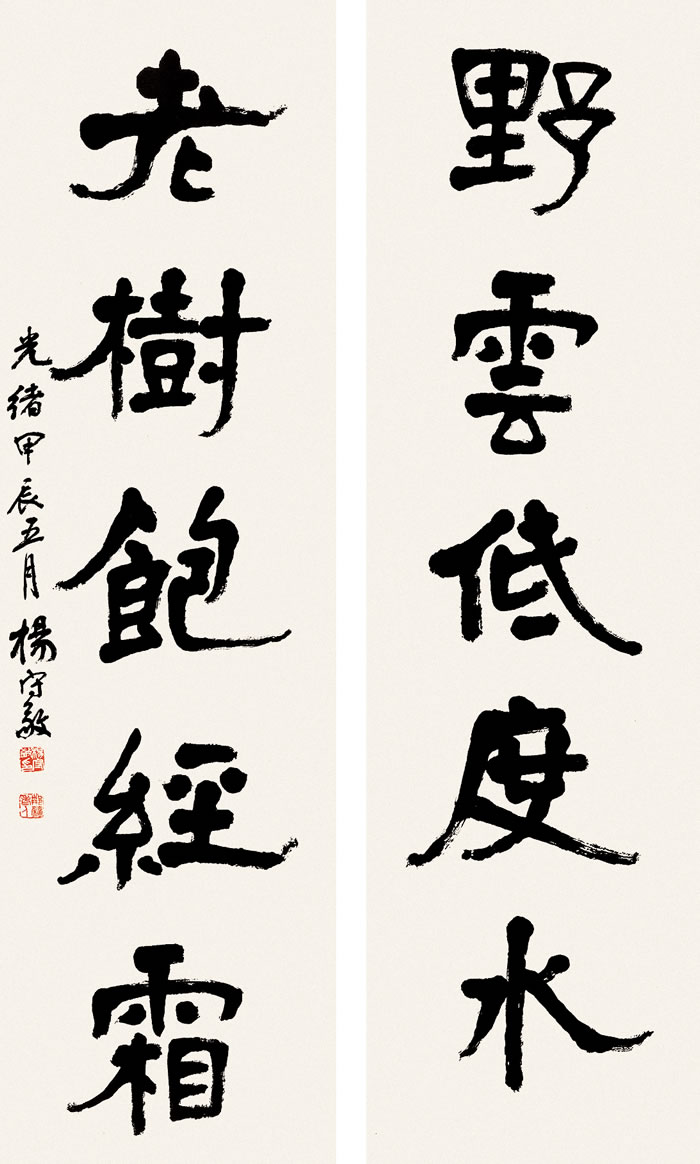 野雲低度水
老樹飽經霜
光緒甲辰五月楊守敬